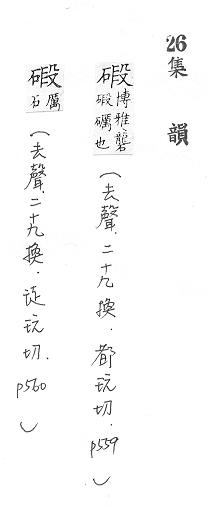 26 集韻
碫 博雅礱碫礪也 (去聲.二十九換.都玩切.p559)
碫 厲石 (去聲.二十九換.徒玩切.p560)